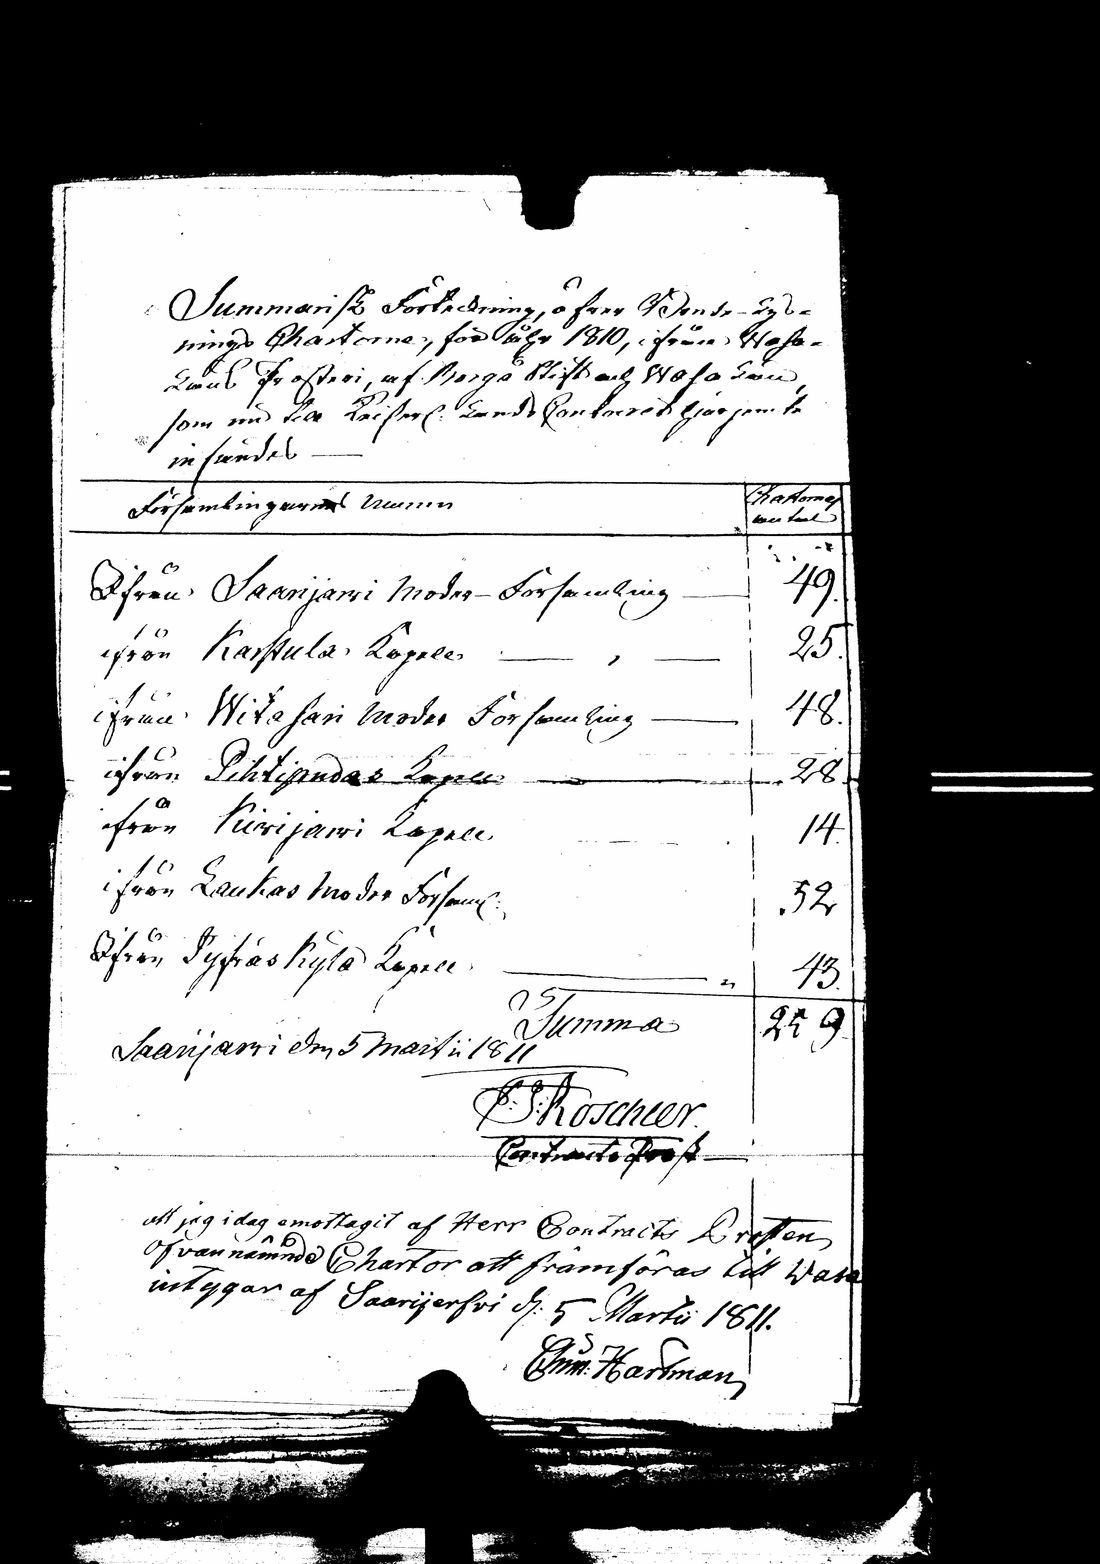 Summarisk Förteckning, öfver Vende-Lys=
nings Chartorne, för åhr 1810, ifrån Wasa=
Läns Prosteri, af Borgå Stift och Wasa Län,
som nu till Keiserl. Lands Contoiret härjemte
insändes —
Församlingarnes Namn Chartornes antal
Ifrån Saarijarvi Moder-Församling — 49.
ifrån Karstula Capell — , — 25.
ifrån Witasari Moder Församling — 48.
ifrån Pihtipudas Capell — 28.
ifrån Kivijarvi Capell 14.
ifrån Laukas Moder Församl: 52
Ifrån Kylä Capell — " 43.
Summa 259
Saarijarvi den 5 Martii 1811
Roschier.
Contracts Prost
att jag idag emottagit af Herr Contracts Prosten
ofvannämnde Chartor att framföras till Wasa
intygar af Saarijerfvi d. 5 Martii 1811.
Hartman